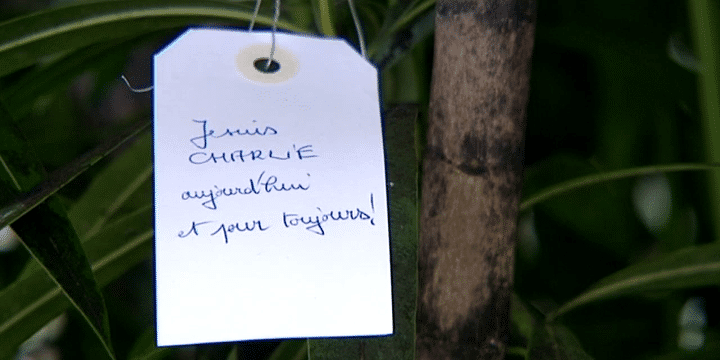 Je suis
CHARLIE
aujourd'hui
et pour toujours!